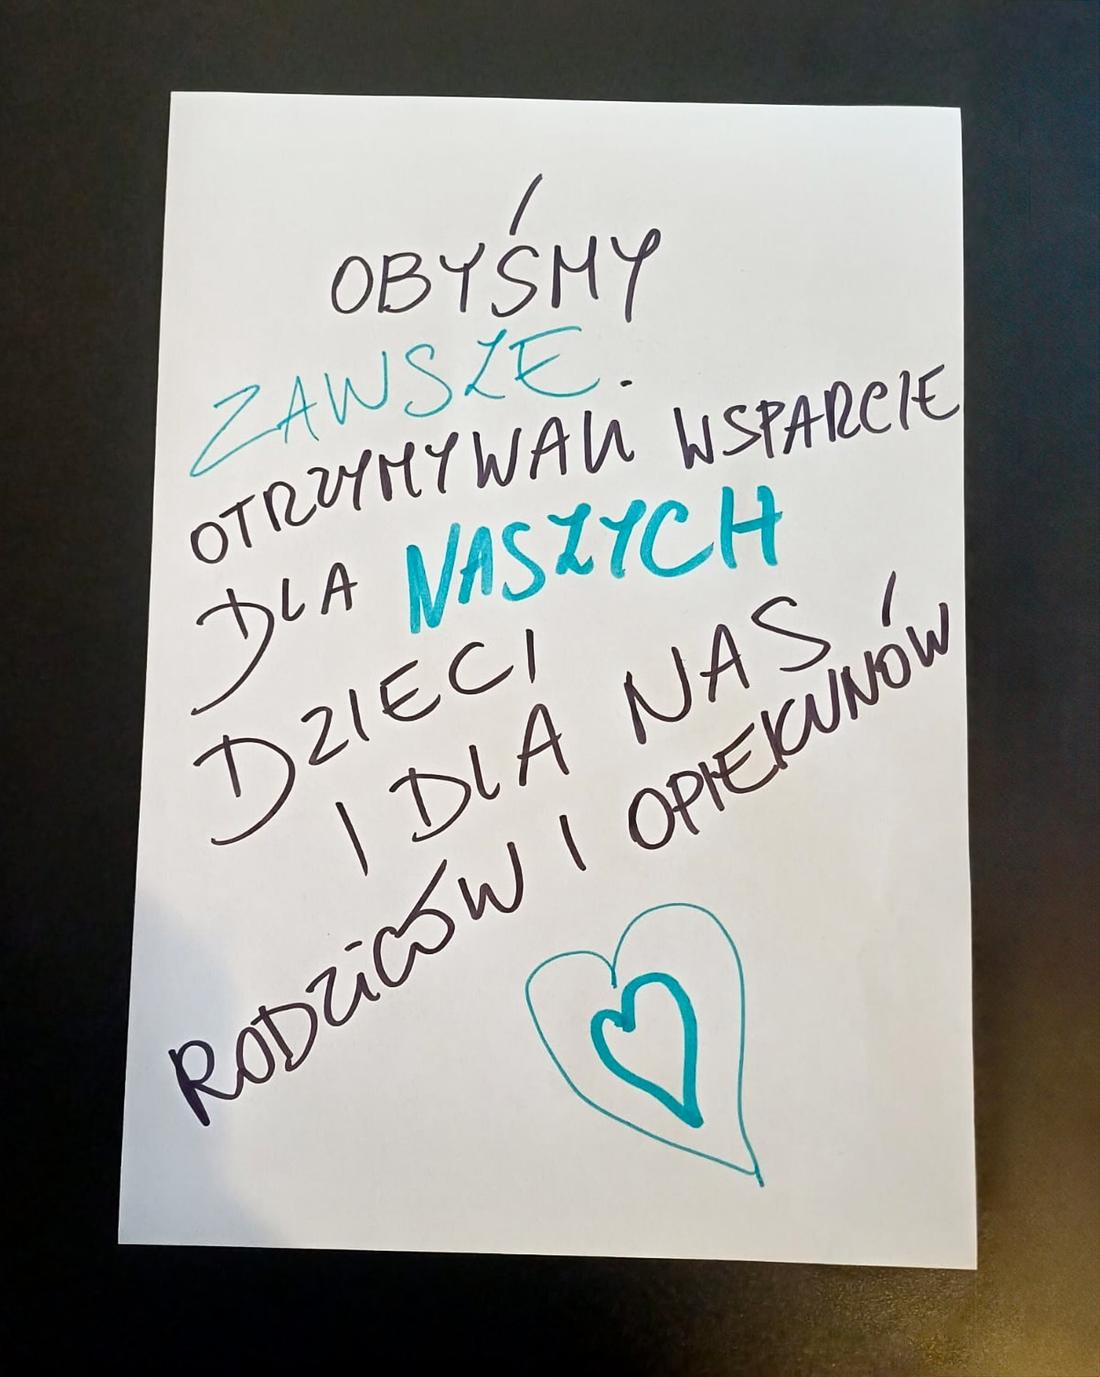 OBYŚMY
ZAWSZE.
OTRZYMYWALI WSPARCIE
DLA NASZYCH
DZIECI
I DLA NAS
RODZICÓW I OPIEKUNÓW